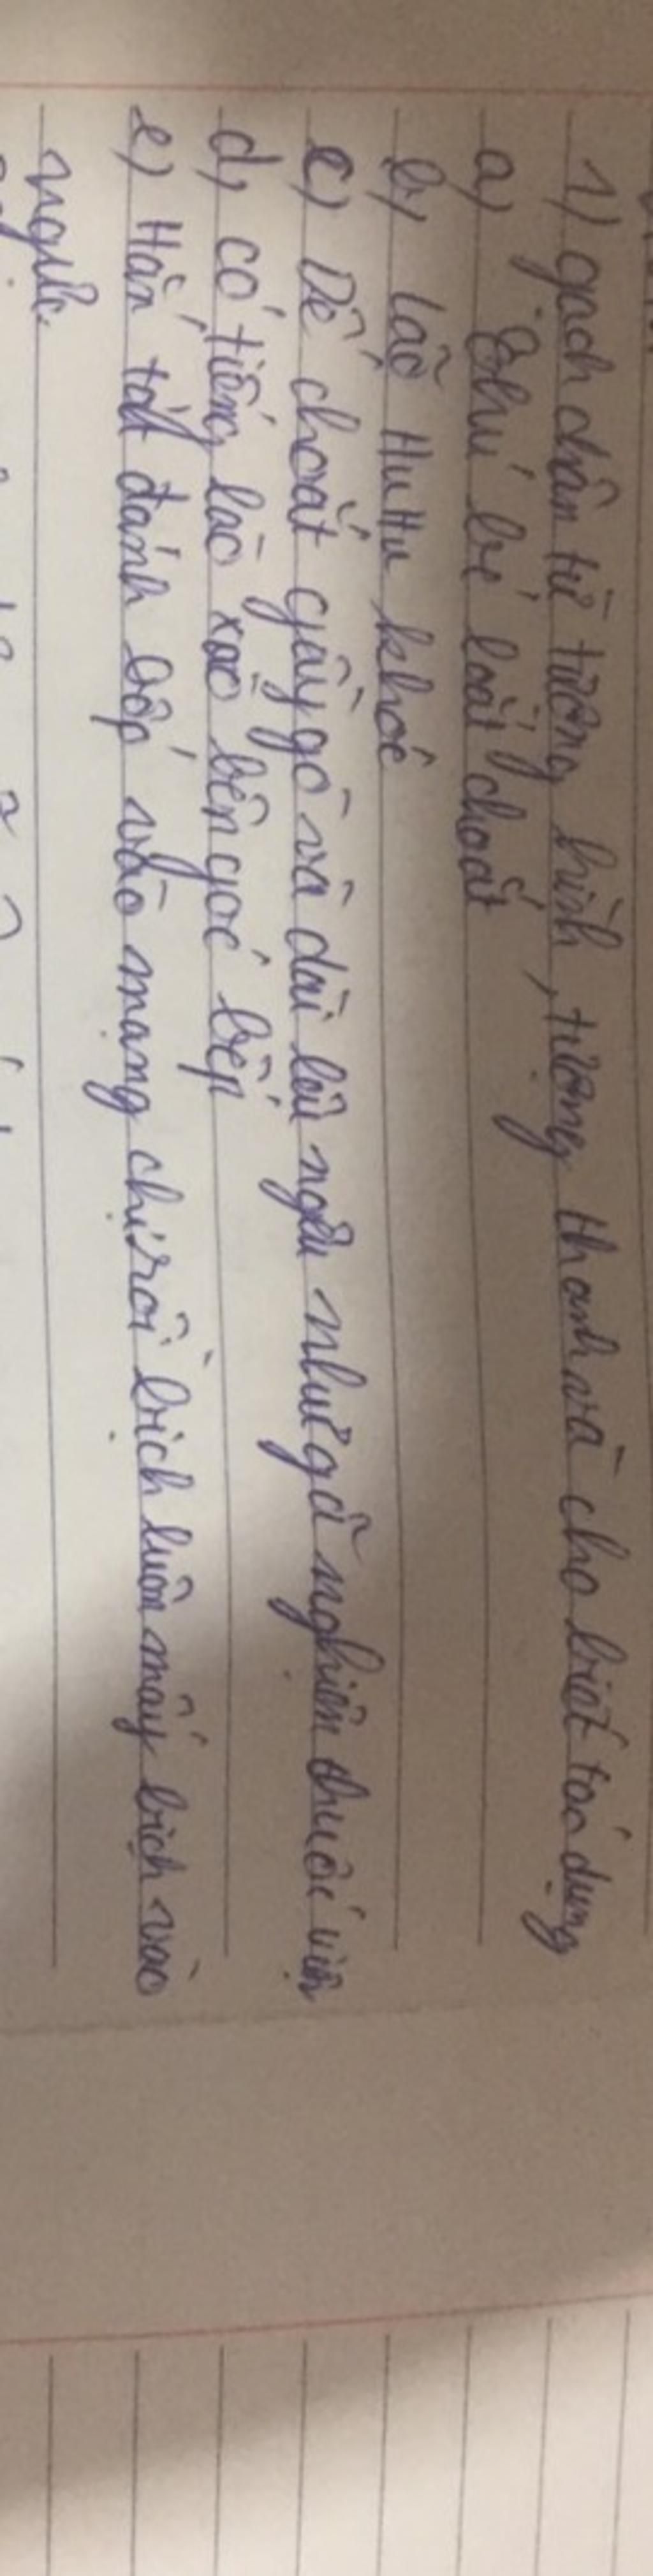 1) gạch chân từ tượng hình, tượng thanh và cho biết tác dụng
a) Chú bé loắt choắt
b) lão Hu Hu khóc
c) Dế choắt gầy gò và dài lêu ngêu như gã nghiện thuốc viện
d) có tiếng lào xào bên góc bếp
e) Hắn tát đánh bốp vào mạng chị rồi bịch luôn mấy bịch vào
ngực.